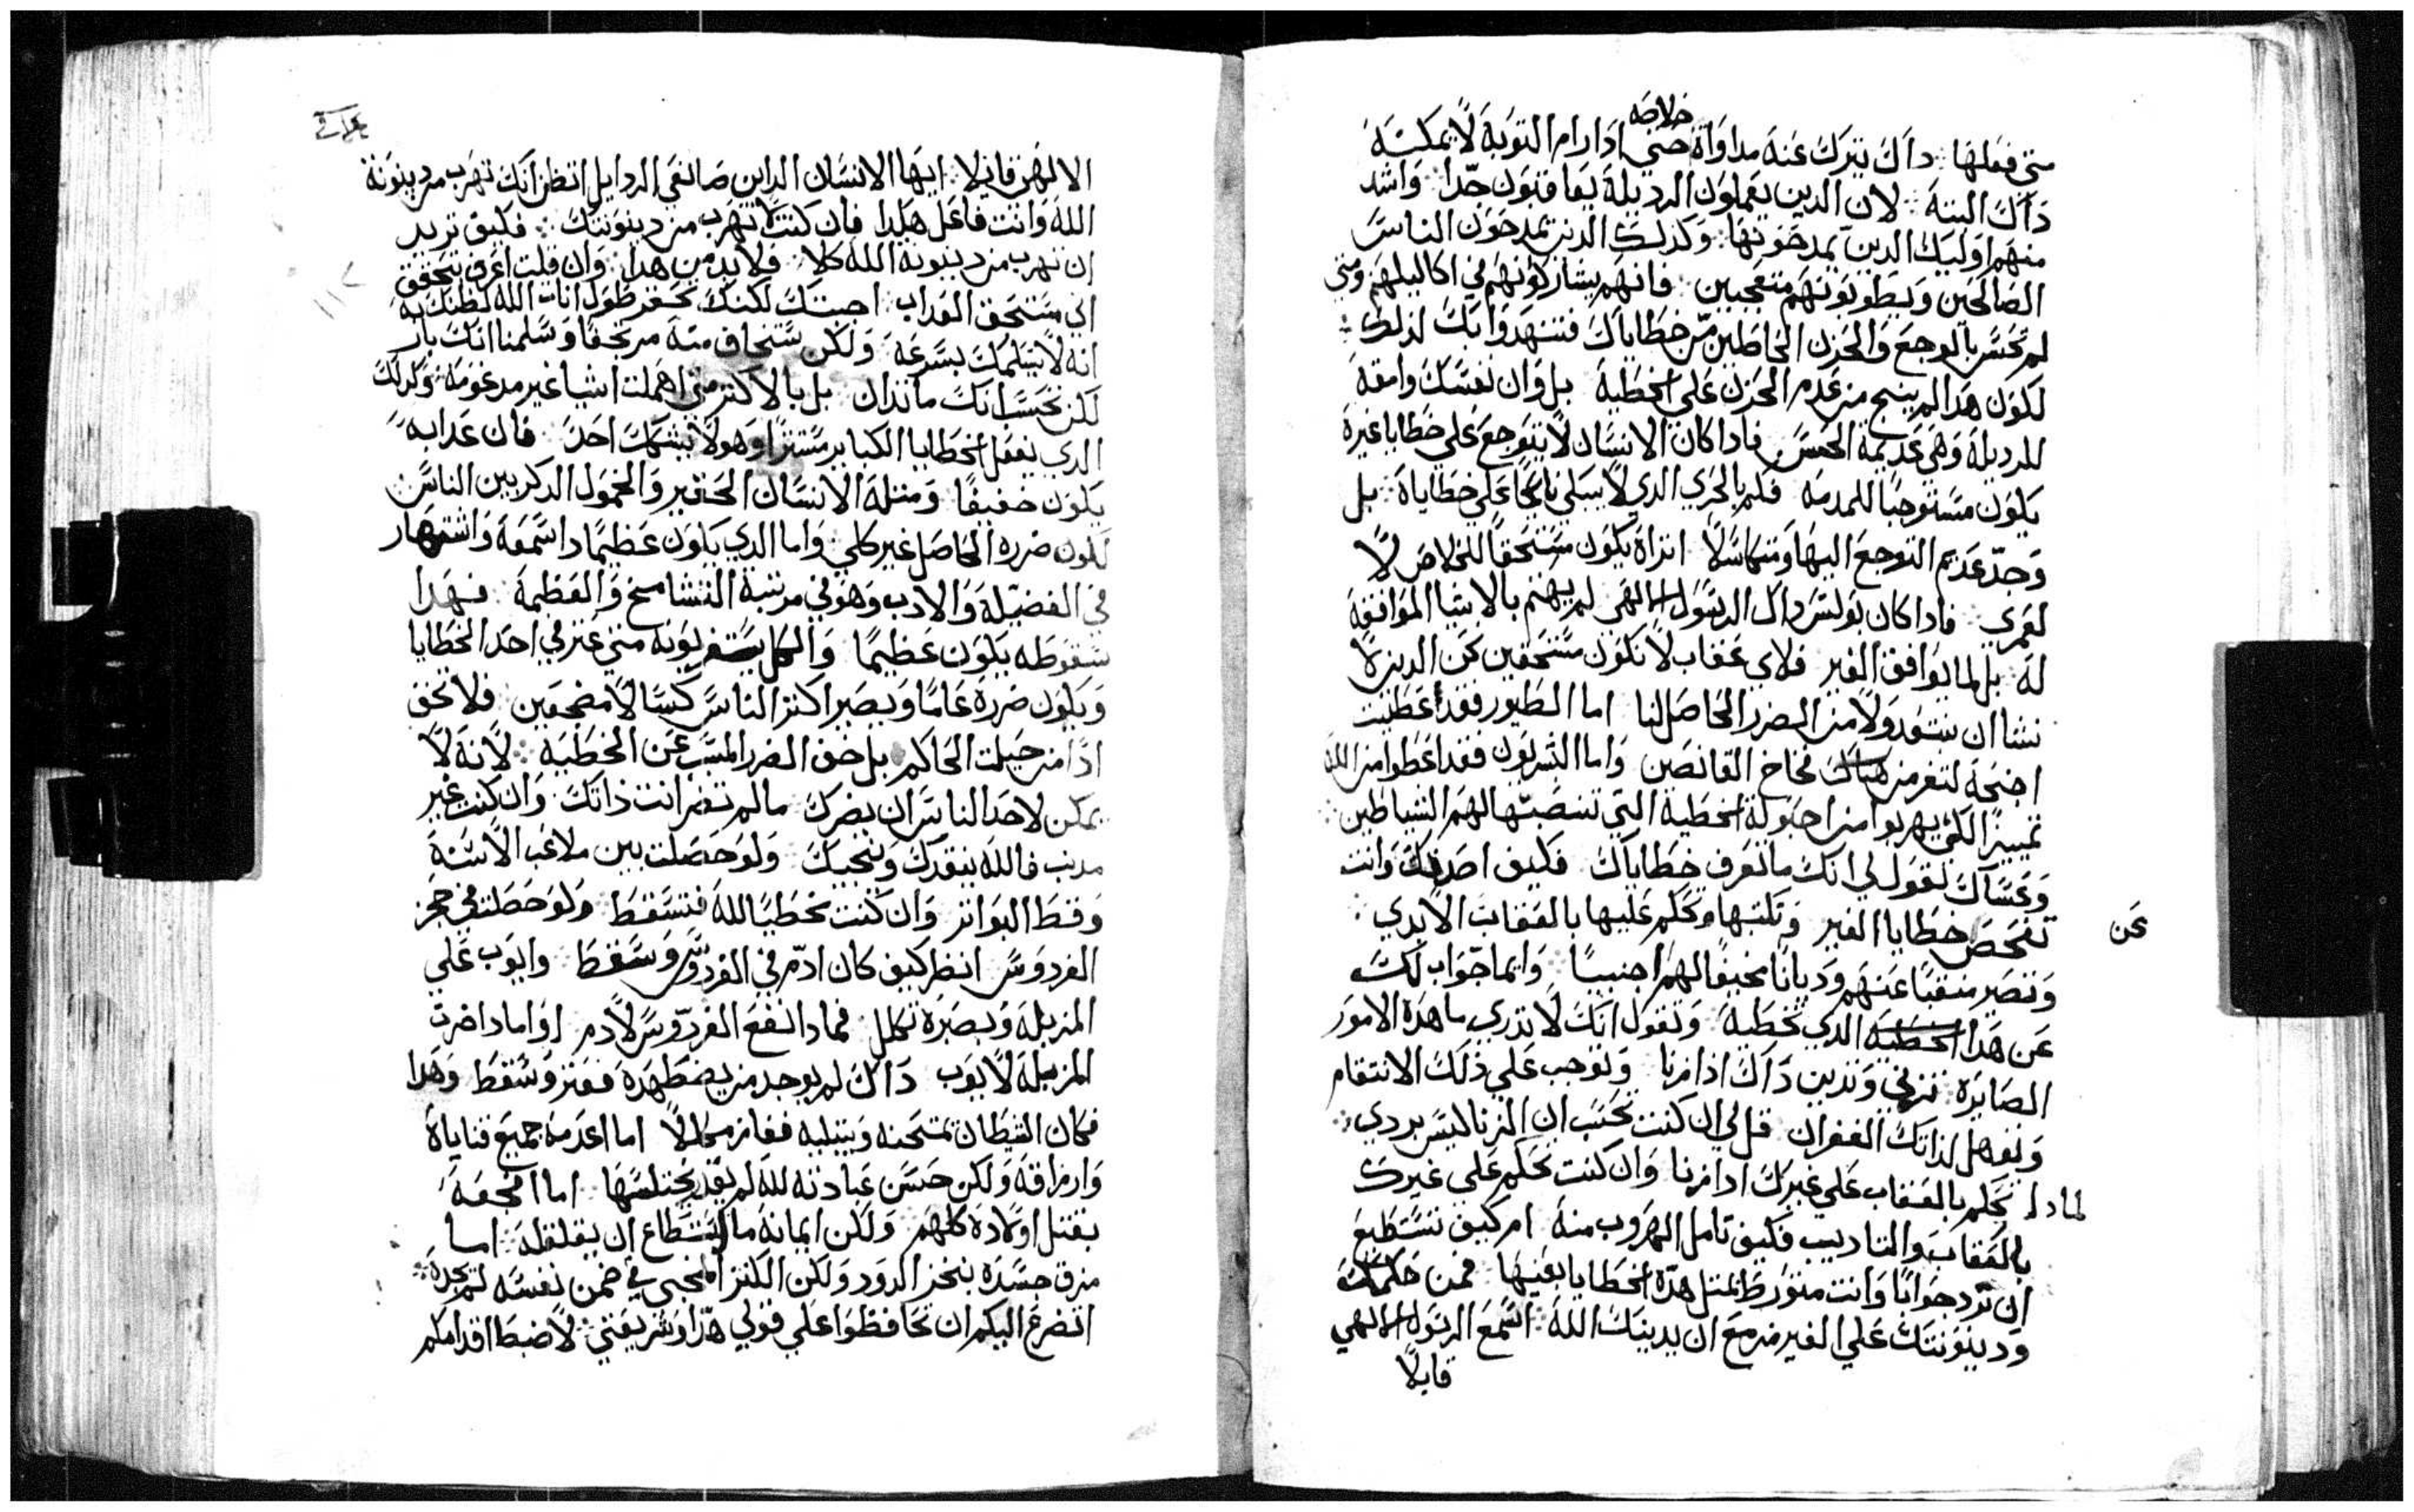 خلاصه
متي فعلها : داك يترك عنه مداواة حتي ادا رام التوبة لا يمكنه
داك البتة : لان الدين يعملون الرديلة يعاقبون جدا : واشد
منهم اوليك الدين يمدحونها : وكدلك الدين يمدحون الناس
الصالحين ويطوبونهم متعجبين : فانهم يشاركونهم في اكاليلهم ومتي
لم تحس بالوجع والحزن الخاطين من خطاياك فتشهد وابك لدلك :
لكون هدا لم ينتج من عدم الحزن علي الخطية بل وان نفسك وامقة
للرديلة وهي عديمة الحس فادا كان الانسان لا يتوجع علي خطايا غيره
يكون مستوجبا للمدمه فكم بالحري الدي لا يبكي نايحا علي خطاياه : بل
وجد عديم التوجع اليها ومتكاسلا اتراه يكون مستحقا للخلاص لا
لعمري : فادا كان بولس داك الرسول الالهي لم يهتم بالاشيا الموافقة
له بل لما يوافق الغير فلاي عقاب لا نكون مستحقين نحن الدين لا
نشا ان نستعد ولا من الضرر الحاصل لنا اما الطيور فقد اعطيت
اجنحة لتفر من هناك فخاخ القانصين واما البشريون فقد اعطوا من الله
تمييزا لكي يهربوا من احبولة الخطية التي تنصبها لهم الشياطين :
وعساك تقول لي انك ما تعرف خطاياك فكيف اصدقك وانت
تفحص خطايا الغير وتكتبها وتحكم عليها بالعقاب الابدي : عن
وتصير منقبا عنهم وديانا مخيفا لهم اجنبيا : وايما جواب لك
عن هدا الخطية الدي تخطيه وتقول انك لا تدري ما هده الامور
الصايرة : تزني وتدين داك ادا زنا وتوجب علي ذلك الانتقام
وتفعل لذاتك الغفران قل لي ان كنت تحسب ان الزنا ليس بردي :
لمادا تحكم بالعقاب علي غيرك ادا زنا وان كنت تحكم علي غيرك
بالعقاب والتاديب فكيف تامل الهروب منه ام كيف تستطيع
ان ترد جوابا وانت متورط بمثل هده الخطايا بعينها فمن حكمك
ودينونتك علي الغير مزمع ان يدينك الله : اسمع الرسول الالهي
قايلا
الالهي قايلا : ايها الانسان الداين صانعي الردايل اتظن انك تهرب من دينونة
الله وانت فاعل هكدا فان كنت لا تهرب من دينونتك : فكيف تريد
ان تهرب من دينونة الله كلا : فلا بد من هدا : وان قلت اعرف بتحقق
اني مستحق العداب اجبتك لكنك تحتقر طول انات الله لظنك به
انه لا يتلمك بسرعة ولكن ستخاف منه مرتجفا وسلمنا انك بار
لكن تحسب انك ما تدان بل بالاكثر متي اهملت اشيا غير مدعومة : وكدلك
الدي يفعل الخطايا الكباير مستترا وهو لا يشكك احد فان عدابه
يكون خفيفا ومثله الانسان الحقير والخمول الدكر بين الناس
لكون ضرره الحاصل غير كلي : واما الدي يكون عظيما دا سمعة واشتهار
في الفضيلة والادب وهو في مرتبة التشامخ والعظمة فهدا
سقوطه يكون عظيما والكل يستغربونه متي عتر في احد الخطايا
ويكون ضرره عاما ويصير اكثر الناس كسالا مضجعين : فلا تخف
ادا من حيلت الحاكم بل خف الضرر المسبب عن الخطية : لانه لا
يمكن لاحد الناس ان يضرك ما لم تضر انت ذاتك وان كنت غير
مدنب فالله ينقدك وينجيك ولو حصلت بين ملاعب الاسنة
وقط البواتر وان كنت تخطيا لله فتسقط ولو حصلت في حجر
الفردوس انظر كيف كان ادم في الفردوس وسقط وايوب علي
المزبلة وبصبره تكلل فمادا نفع الفردوس لادم او امادا ضرت
المزبلة لايوب داك لم يوجد من يضطهده فعتر وسقط وهدا
فكان الشطان يمتحنه ويبتليه ففاز مكللا اما اعدمه جميع قناياه
وارزاقه ولكن حسن عبادته لله لم يقد يختلسها اما افجعه
بقتل اولاده كلهم ولكن ايمانه ما استطاع ان يقلقله : اما
مزق جسده بنخز الدود ولكن الكنز المخبي في ضمن نفسه لم يجده :
اتضرع اليكم ان تحافظوا علي قولي هدا وشريعتي : لاضبط اقدامكم